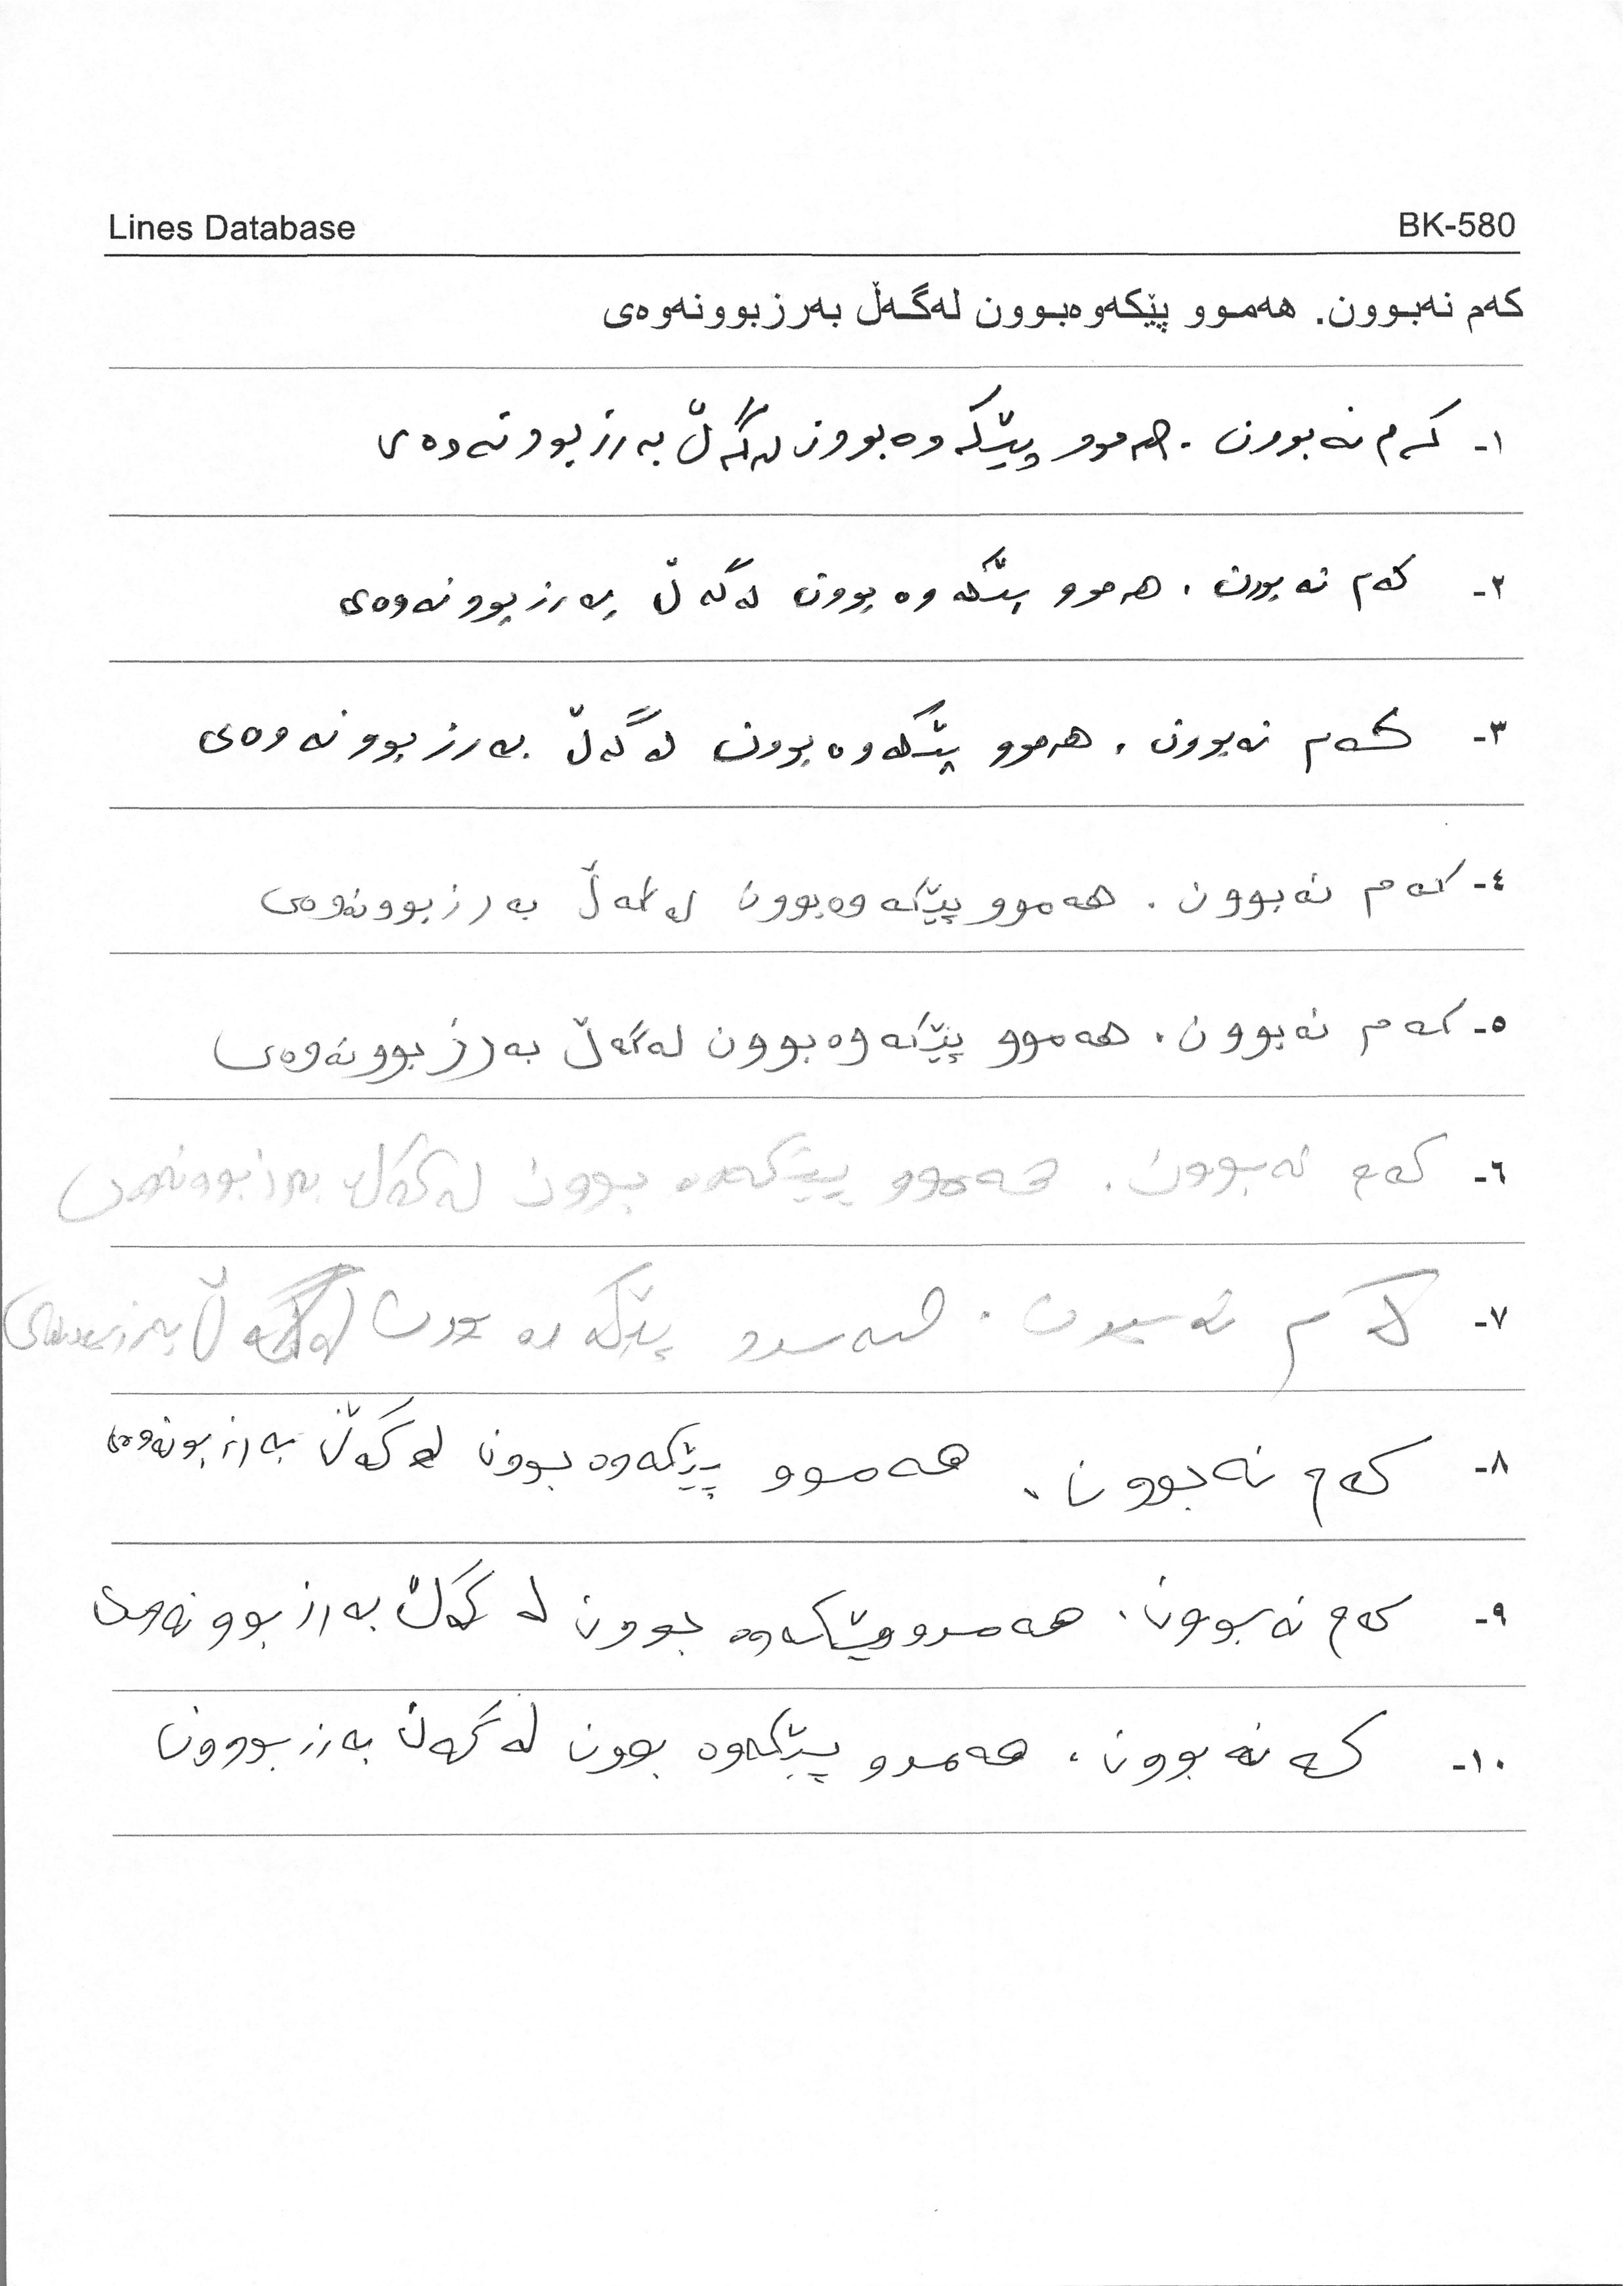 Lines Database BK-580
کەم نەبوون. هەموو پێکەوەبوون لەگەڵ بەرزبوونەوەی
١- کەم نەبوون . هەموو پێکەوەبوون لەگەڵ بەرزبوونەوەی
٢- کەم نەبوون . هەموو پێکەوەبوون لەگەڵ بەرزبوونەوەی
٣- کەم نەبوون . هەموو پێکەوەبوون لەگەڵ بەرزبوونەوەی
٤- کەم نەبوون . هەموو پێکەوەبوون لەگەڵ بەرزبوونەوەی
٥- کەم نەبوون . هەموو پێکەوەبوون لەگەڵ بەرزبوونەوەی
٦- کەم نەبوون . هەموو پێکەوە بوون لەگەڵ بەرزبوونەوەی
٧- کەم نەبوون . هەموو پێکەوە بوون لەگەڵ
٨- کەم نەبوون . هەموو پێکەوە بوون لەگەڵ بەرزبونەوەی
٩- کەم نەبوون . هەموو پێکەوە بوون لە گەڵ بەرزبوونەوەی
١٠- کە نەبوون . هەموو پێکەوە بوون لەگەڵ بەرزبووون